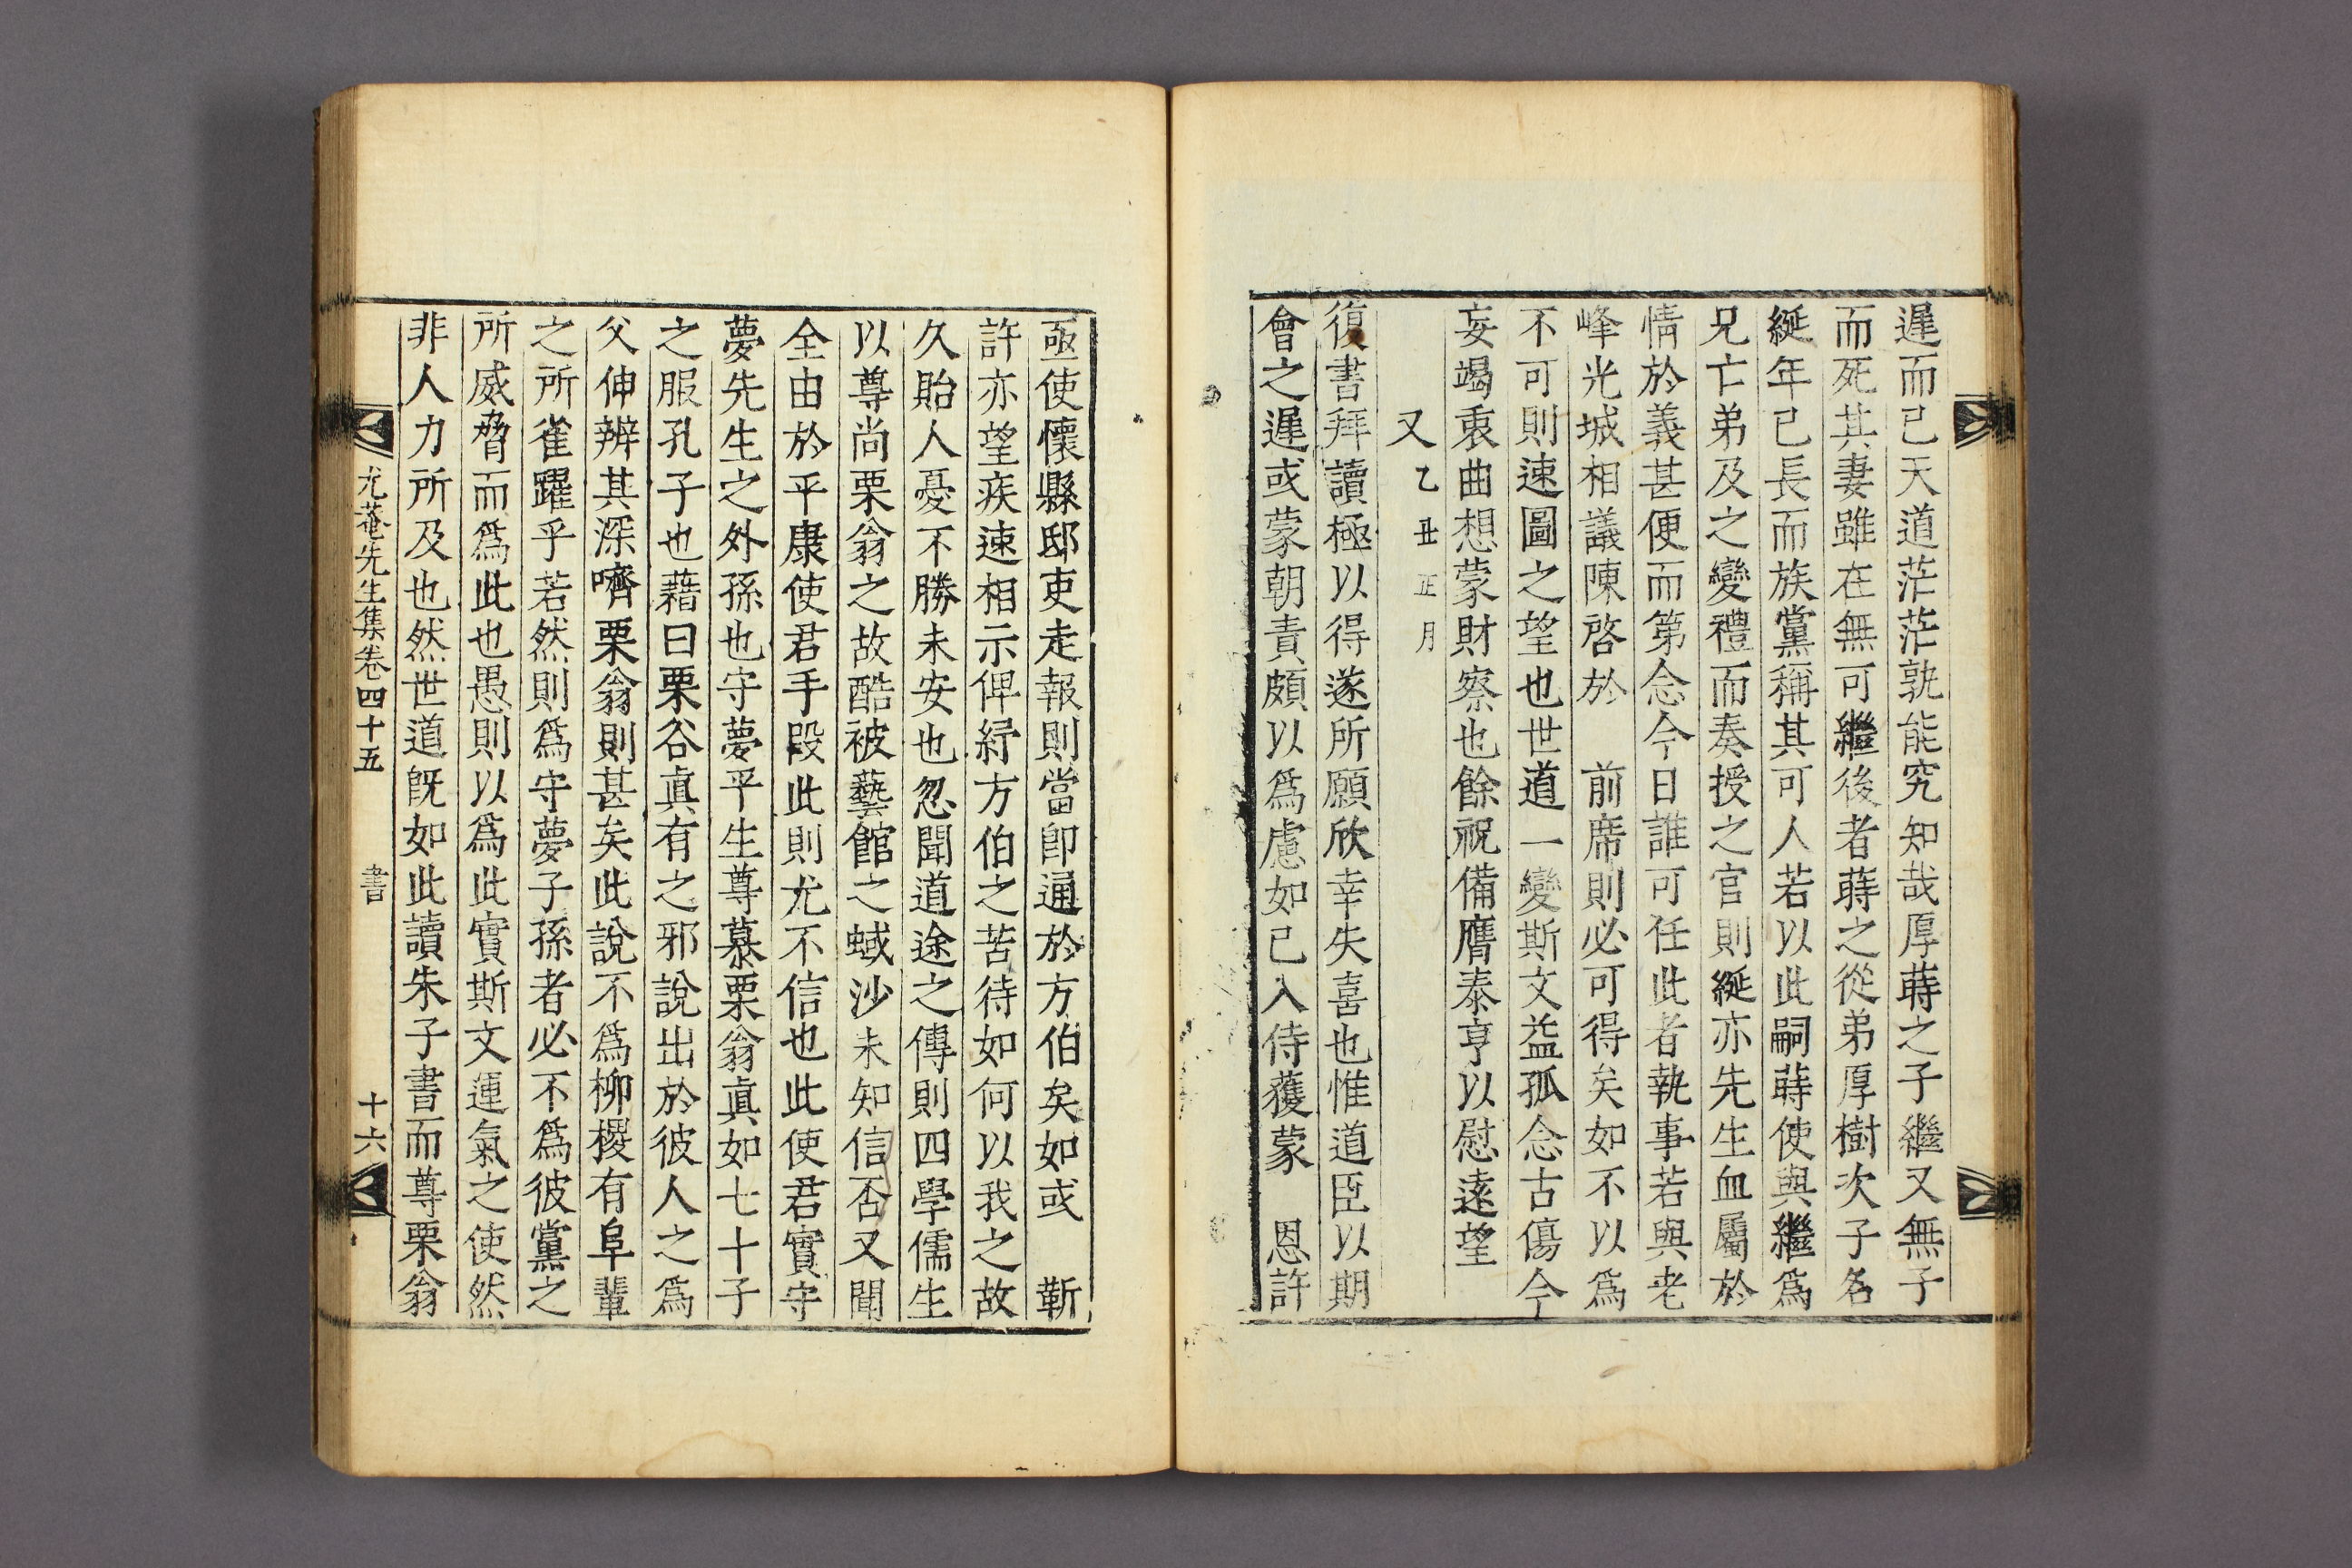 遲而已天道茫茫孰能究知哉厚蒔之子繼又無子
而死其妻雖在無可繼後者蒔之從弟厚樹次子名
綖年已長而族黨稱其可人若以此嗣蒔使與繼爲
兄亡弟及之變禮而奏授之官則綖亦先生血屬於
情於義甚便而第念今日誰可任此者執事若與老
峰光城相議陳啓於　前席則必可得矣如不以爲
不可則速圖之望也世道一變斯文益孤念古傷今
妄竭衷曲想蒙財察也餘祝備膺泰亨以慰遠望
又乙丑正月
復書拜讀極以得遂所願欣幸失喜也惟道臣以期
會之遲或蒙朝責頗以爲慮如已入侍獲蒙　恩許
亟使懷縣邸吏走報則當卽通於方伯矣如或　靳
許亦望疾速相示俾紓方伯之苦待如何以我之故
久貽人憂不勝未安也忽聞道途之傳則四學儒生
以尊尚栗翁之故酷被藝館之蜮沙未知信否又聞
全由於平康使君手段此則尤不信也此使君實守
夢先生之外孫也守夢平生尊慕栗翁眞如七十子
之服孔子也藉曰栗谷眞有之邪說出於彼人之爲
父伸辨其深嚌栗翁則甚矣此說不爲柳㮨有阜輩
之所雀躍乎若然則爲守夢子孫者必不爲彼黨之
所威脅而爲此也愚則以爲此實斯文運氣之使然
非人力所及也然世道旣如此讀朱子書而尊栗翁
尤菴先生集卷四十五　書　十六